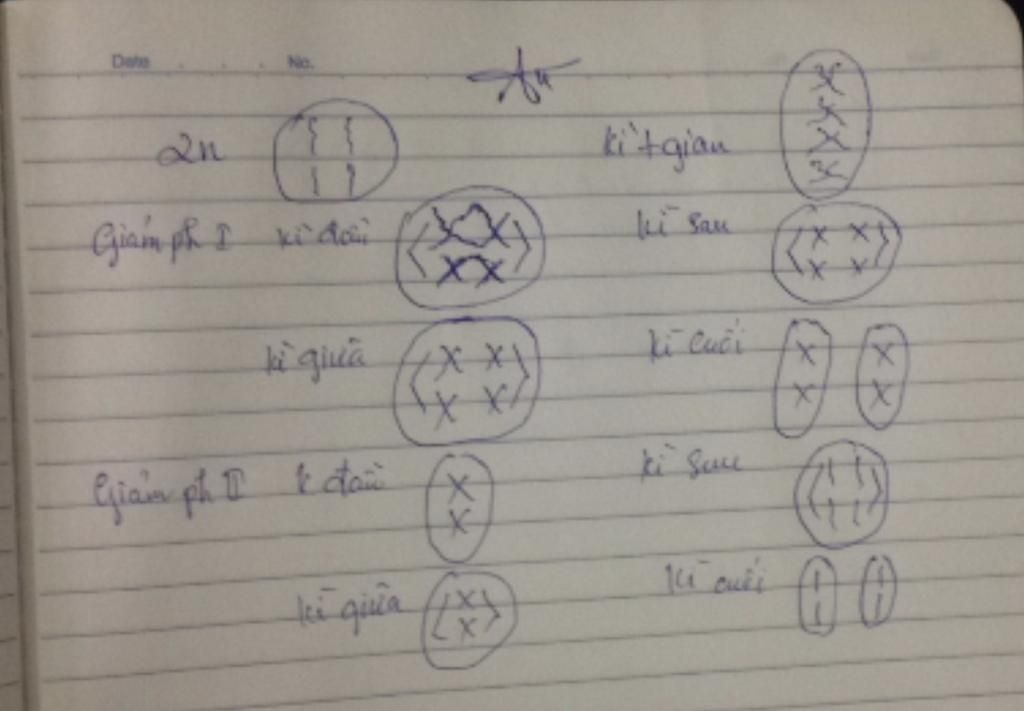 Date No.
2n kì t gian
Giảm ph I kì đầu kì sau
kì giữa kì cuối
Giảm ph II k đầu kì sau
kì giữa kì cuối